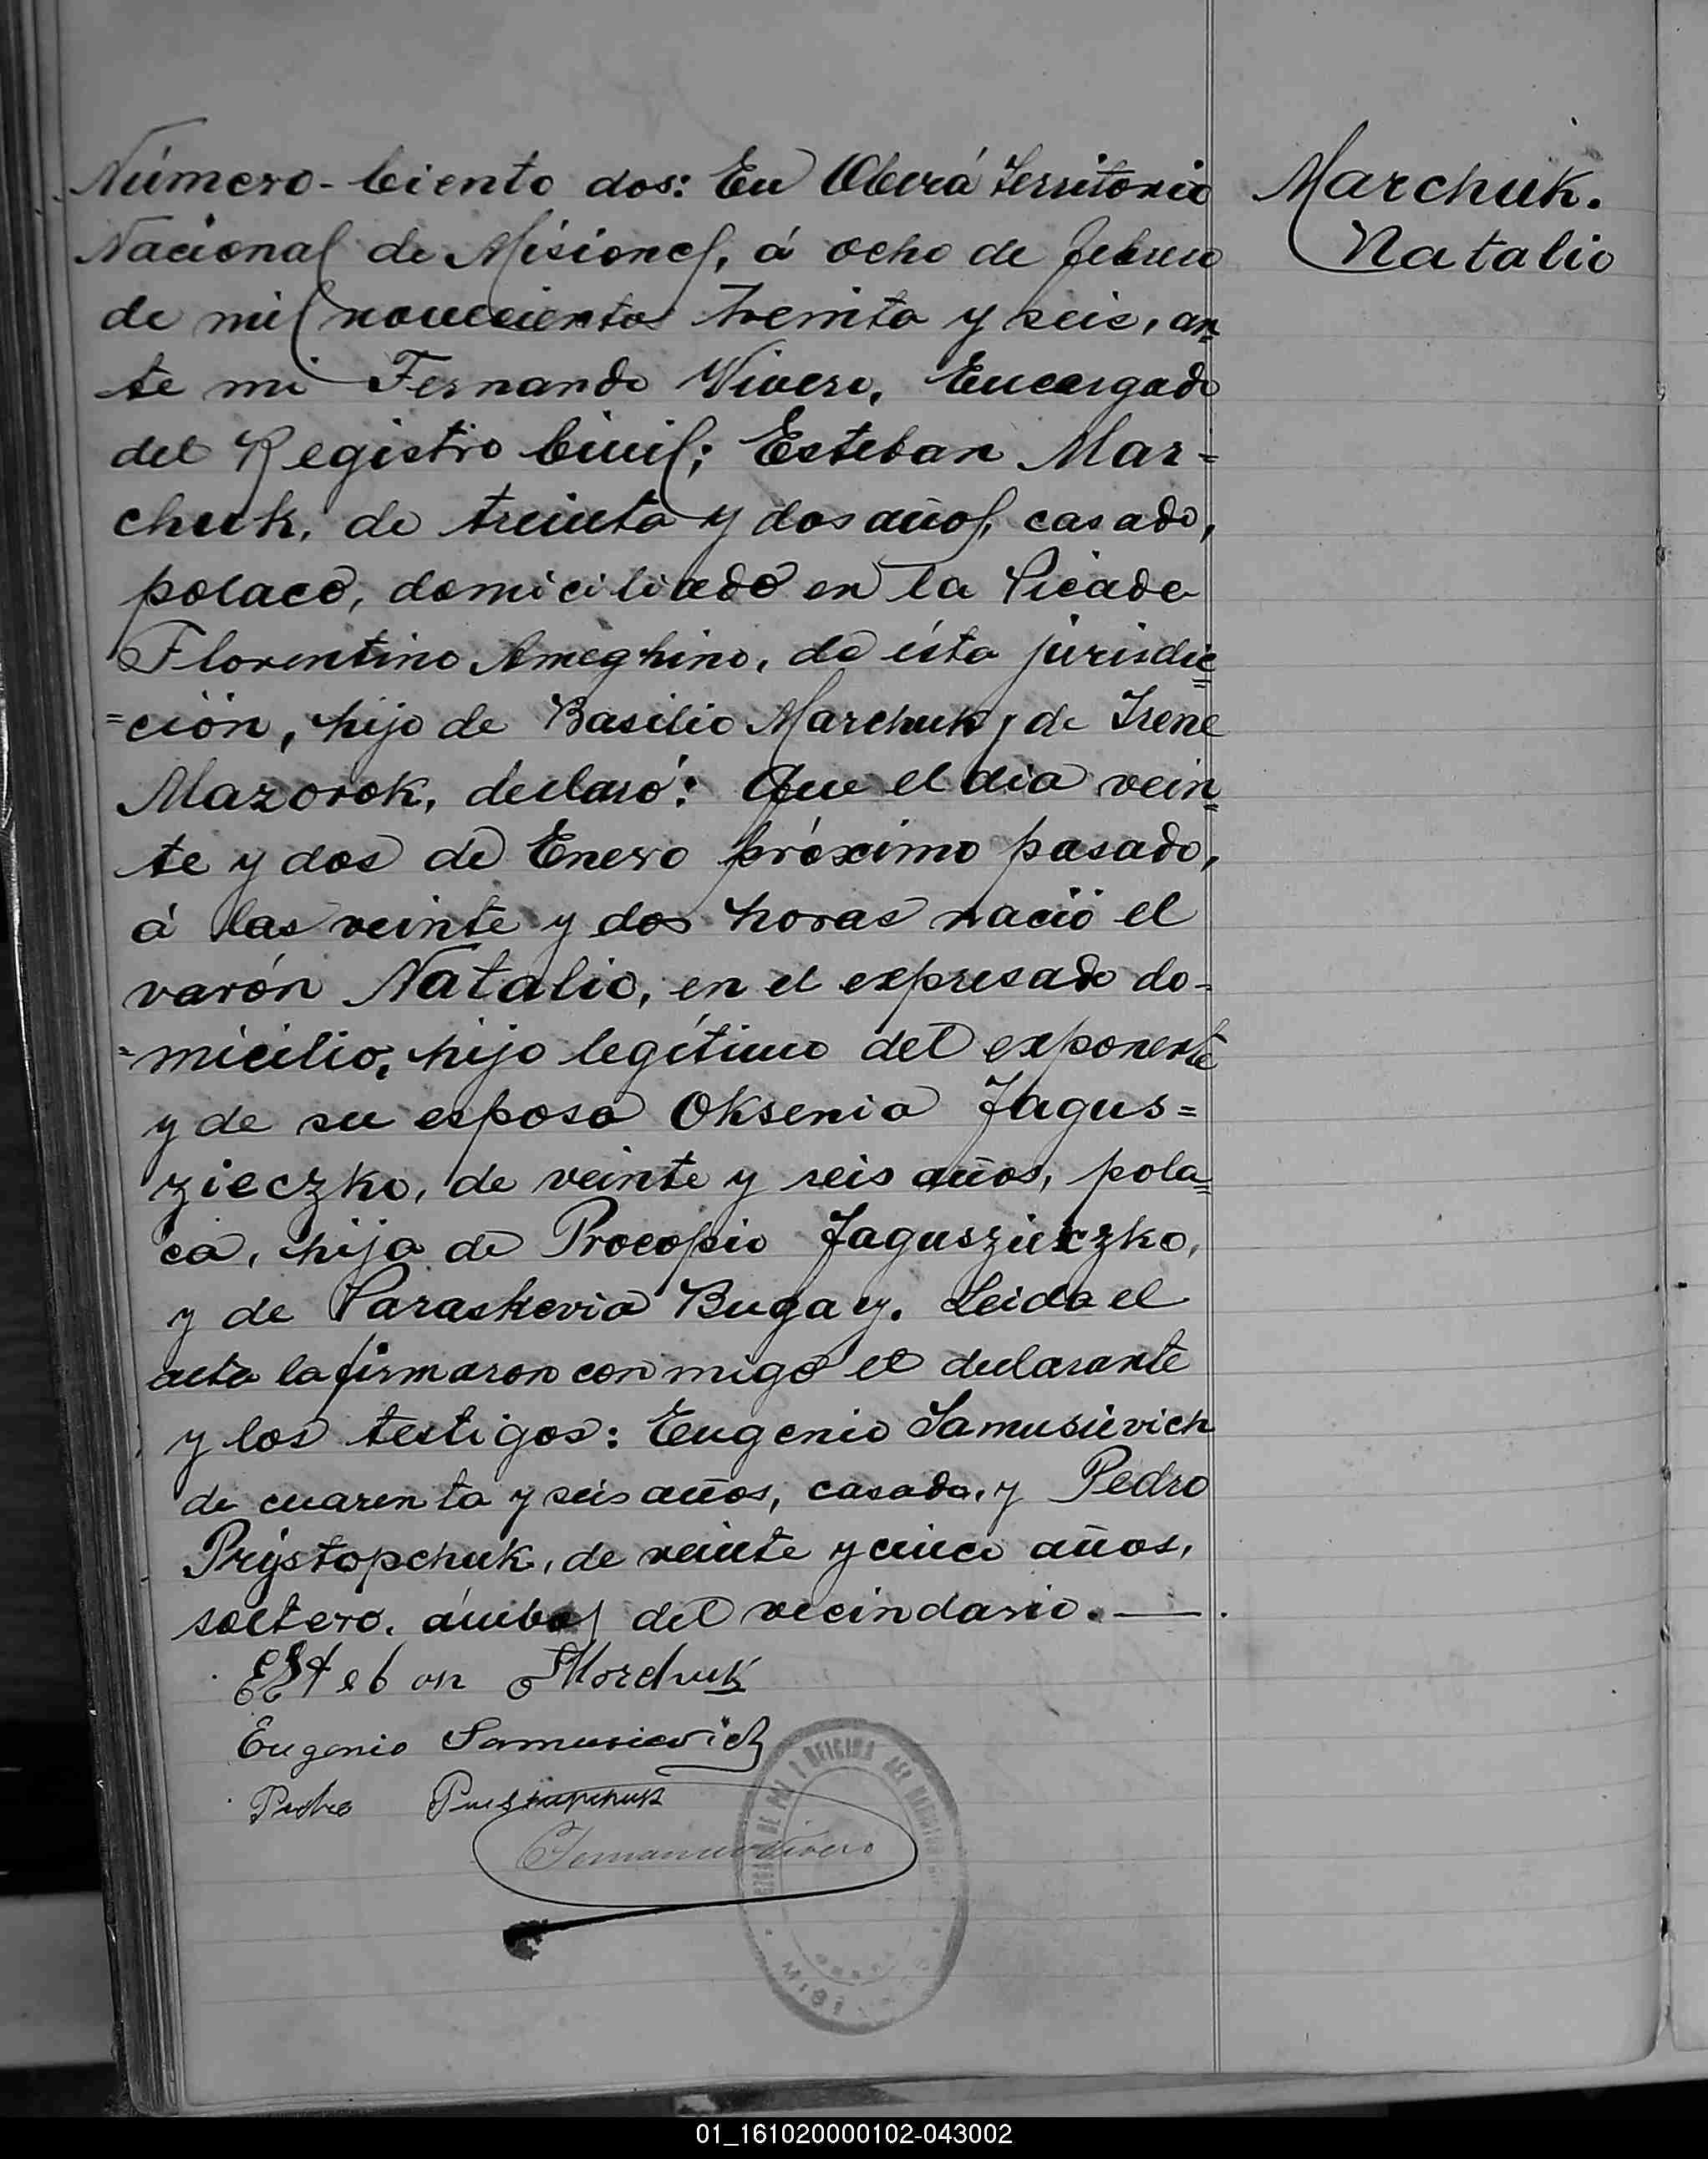 Número-Ciento dos: En Oberá Territorio
Nacional de Misiones, á ocho de febrero
de mil novecientos treinta y seis, an=
te mi Fernando Vivero, Encargado
del Registro Civil; Esteban Mar=
chuk, de treinta y dos años, casado,
polaco, domiciliado en la Picada
Florentino Ameghino, de ésta jurisdic=
=ción, hijo de Basilio Marchuk y de Irene
Mazorok, declaró: Que el dia vein=
te y dos de Enero próximo pasado,
á las veinte y dos horas nació el
varón Natalio, en el expresado do=
=micilio, hijo legítimo del exponente
y de su esposa Oksenia Jagus=
zieczko, de veinte y seis años, pola=
ca, hija de Procopio Jaguszieczko,
y de Paraskevia Bugay. Leida el
acta la firmaron conmigo el declarante
y los testigos: Eugenio Samusievich
de cuarenta y seis años, casado, y Pedro
Prystopchuk, de veinte y cinco años,
soltero, ámbos del vecindario. —
Marchuk.
Natalio
ESteban Marchuk
Eugenio Samusievich
Pedro
Fernando Vivero
01_161020000102-043002